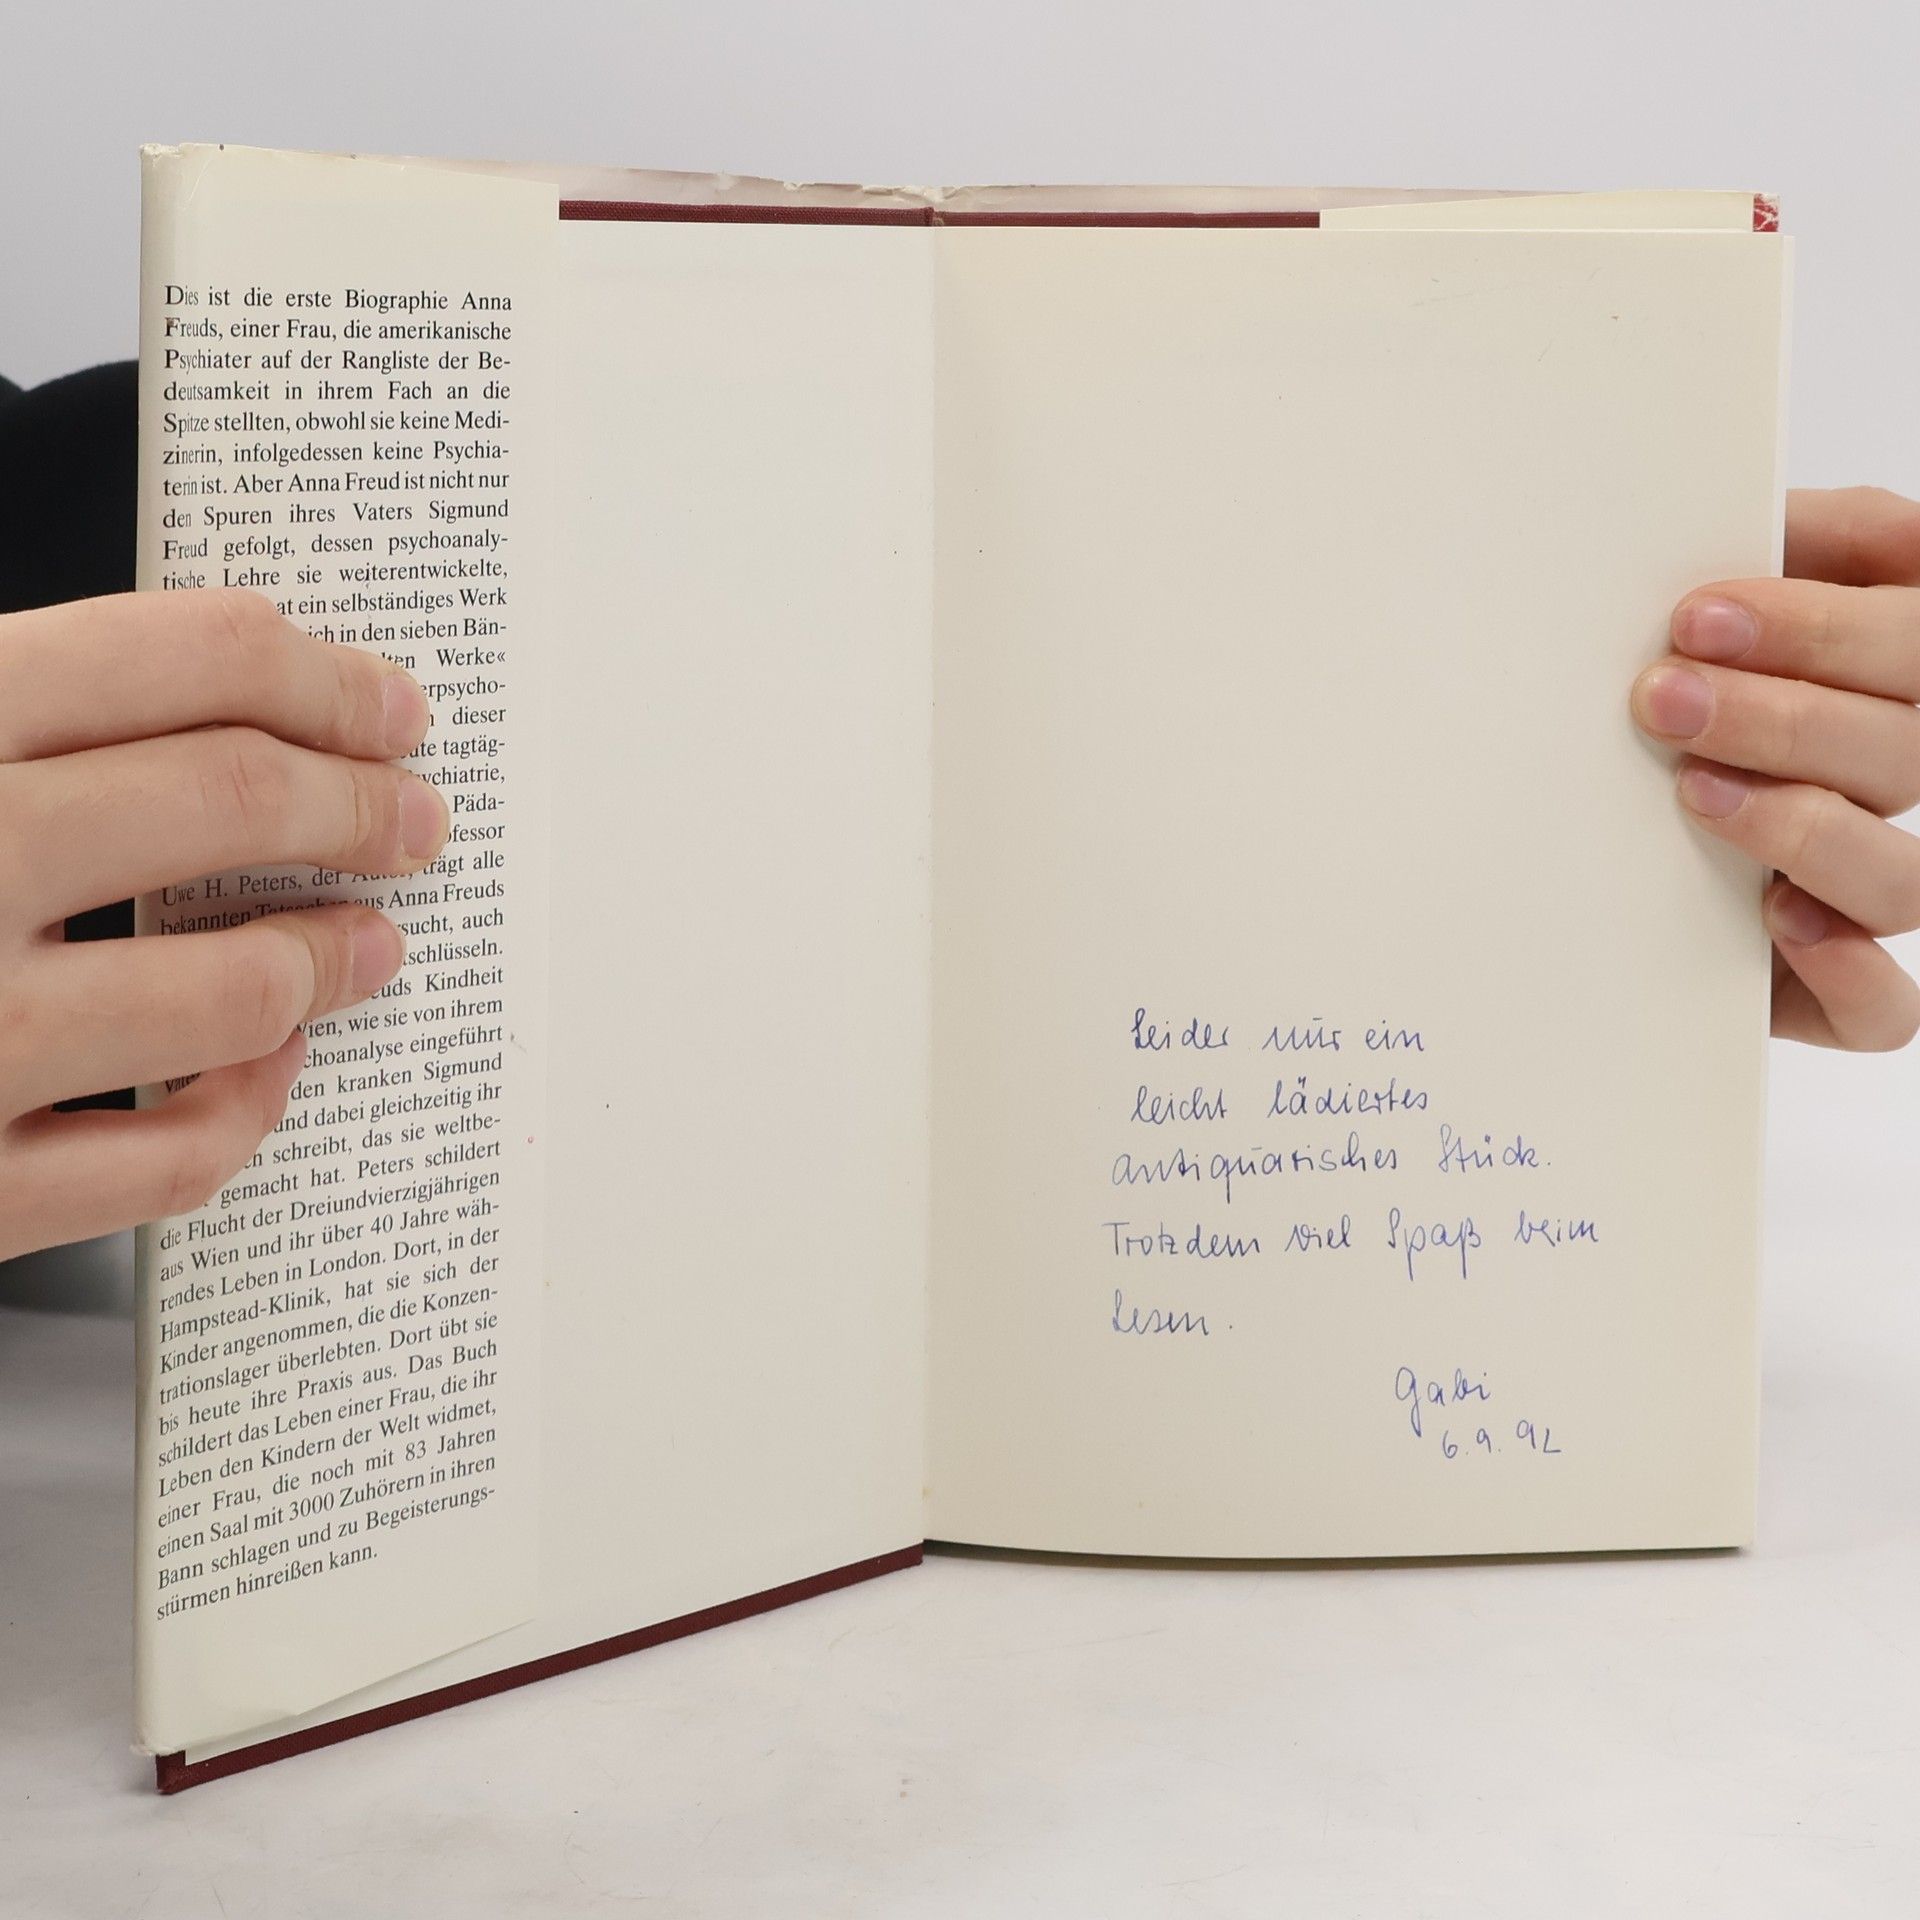 Dies ist die erste Biographie Anna
Freuds, einer Frau, die amerikanische
Psychiater auf der Rangliste der Be-
deutsamkeit in ihrem Fach an die
Spitze stellten, obwohl sie keine Medi-
zinerin, infolgedessen keine Psychia-
terin ist. Aber Anna Freud ist nicht nur
den Spuren ihres Vaters Sigmund
Freud gefolgt, dessen psychoanaly-
tische Lehre sie weiterentwickelte,
at ein selbständiges Werk
ich in den sieben Bän-
lten Werke«
erpsycho-
dieser
ute tagtäg-
ychiatrie,
Päda-
ofessor
Uwe H. Peters, der trägt alle
bekannten aus Anna Freuds
sucht, auch
tschlüsseln.
euds Kindheit
Wien, wie sie von ihrem
choanalyse eingeführt
den kranken Sigmund
und dabei gleichzeitig ihr
schreibt, das sie weltbe-
gemacht hat. Peters schildert
die Flucht der Dreiundvierzigjährigen
aus Wien und ihr über 40 Jahre wäh-
rendes Leben in London. Dort, in der
Hampstead-Klinik, hat sie sich der
Kinder angenommen, die die Konzen-
trationslager überlebten. Dort übt sie
bis heute ihre Praxis aus. Das Buch
schildert das Leben einer Frau, die ihr
Leben den Kindern der Welt widmet,
einer Frau, die noch mit 83 Jahren
einen Saal mit 3000 Zuhörern in ihren
Bann schlagen und zu Begeisterungs-
stürmen hinreißen kann.
Leider nur ein
leicht lädiertes
antiquarisches Stück.
Trotzdem viel Spaß beim
Lesen.
Gabi
6.9.92